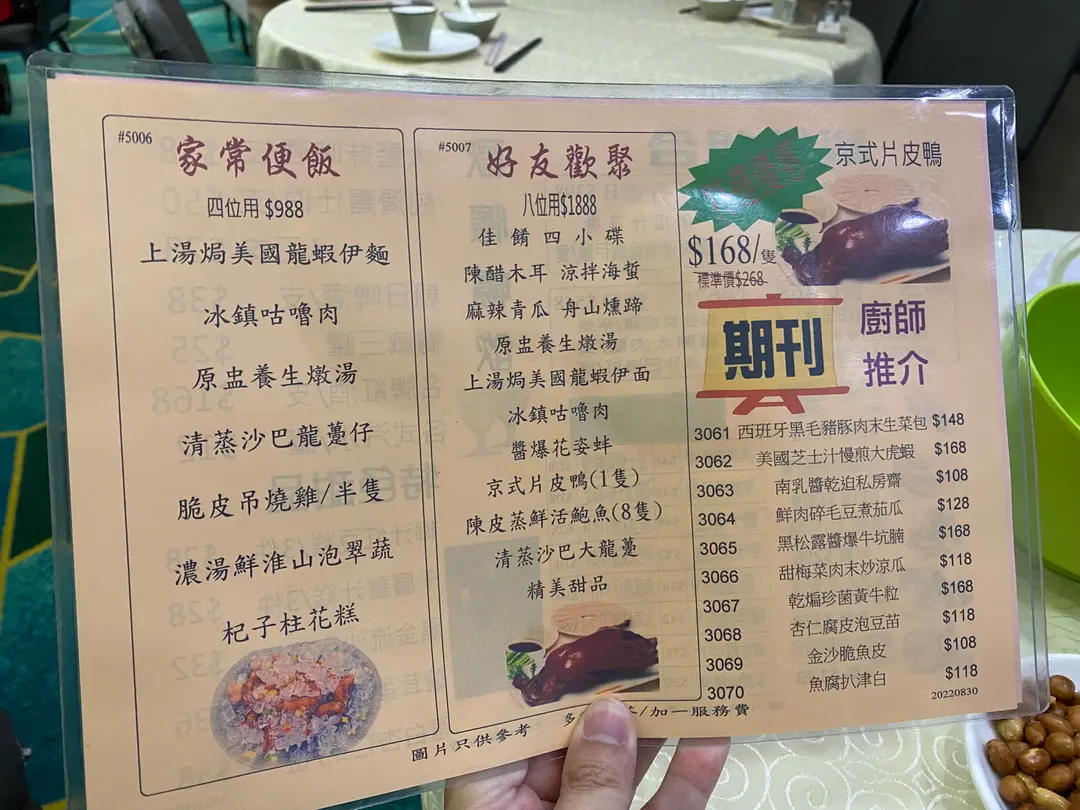 #5006
家常便飯
四位用 $988
上湯焗美國龍蝦伊麵
冰鎮咕嚕肉
原盅養生燉湯
清蒸沙巴龍躉仔
脆皮吊燒雞/半隻
濃湯鮮淮山泡翠蔬
杞子柱花糕
#5007
好友歡聚
八位用$1888
佳餚四小碟
陳醋木耳 涼拌海蜇
麻辣青瓜 舟山燻蹄
原盅養生燉湯
上湯焗美國龍蝦伊面
冰鎮咕嚕肉
醬爆花姿蚌
京式片皮鴨(1隻)
陳皮蒸鮮活鮑魚(8隻)
清蒸沙巴大龍躉
精美甜品
京式片皮鴨
$168/隻
標準價$268
期刊
廚師
推介
3061 西班牙黑毛豬豚肉末生菜包 $148
3062 美國芝士汁慢煎大虎蝦 $168
3063 南乳醬乾迫私房齋 $108
3064 鮮肉碎毛豆煮茄瓜 $128
3065 黑松露醬爆牛坑腩 $168
3066 甜梅菜肉末炒涼瓜 $118
3067 乾煸珍菌黃牛粒 $168
3068 杏仁腐皮泡豆苗 $118
3069 金沙脆魚皮 $108
3070 魚腐扒津白 $118
20220830
圖片只供參考
多 /加一服務費